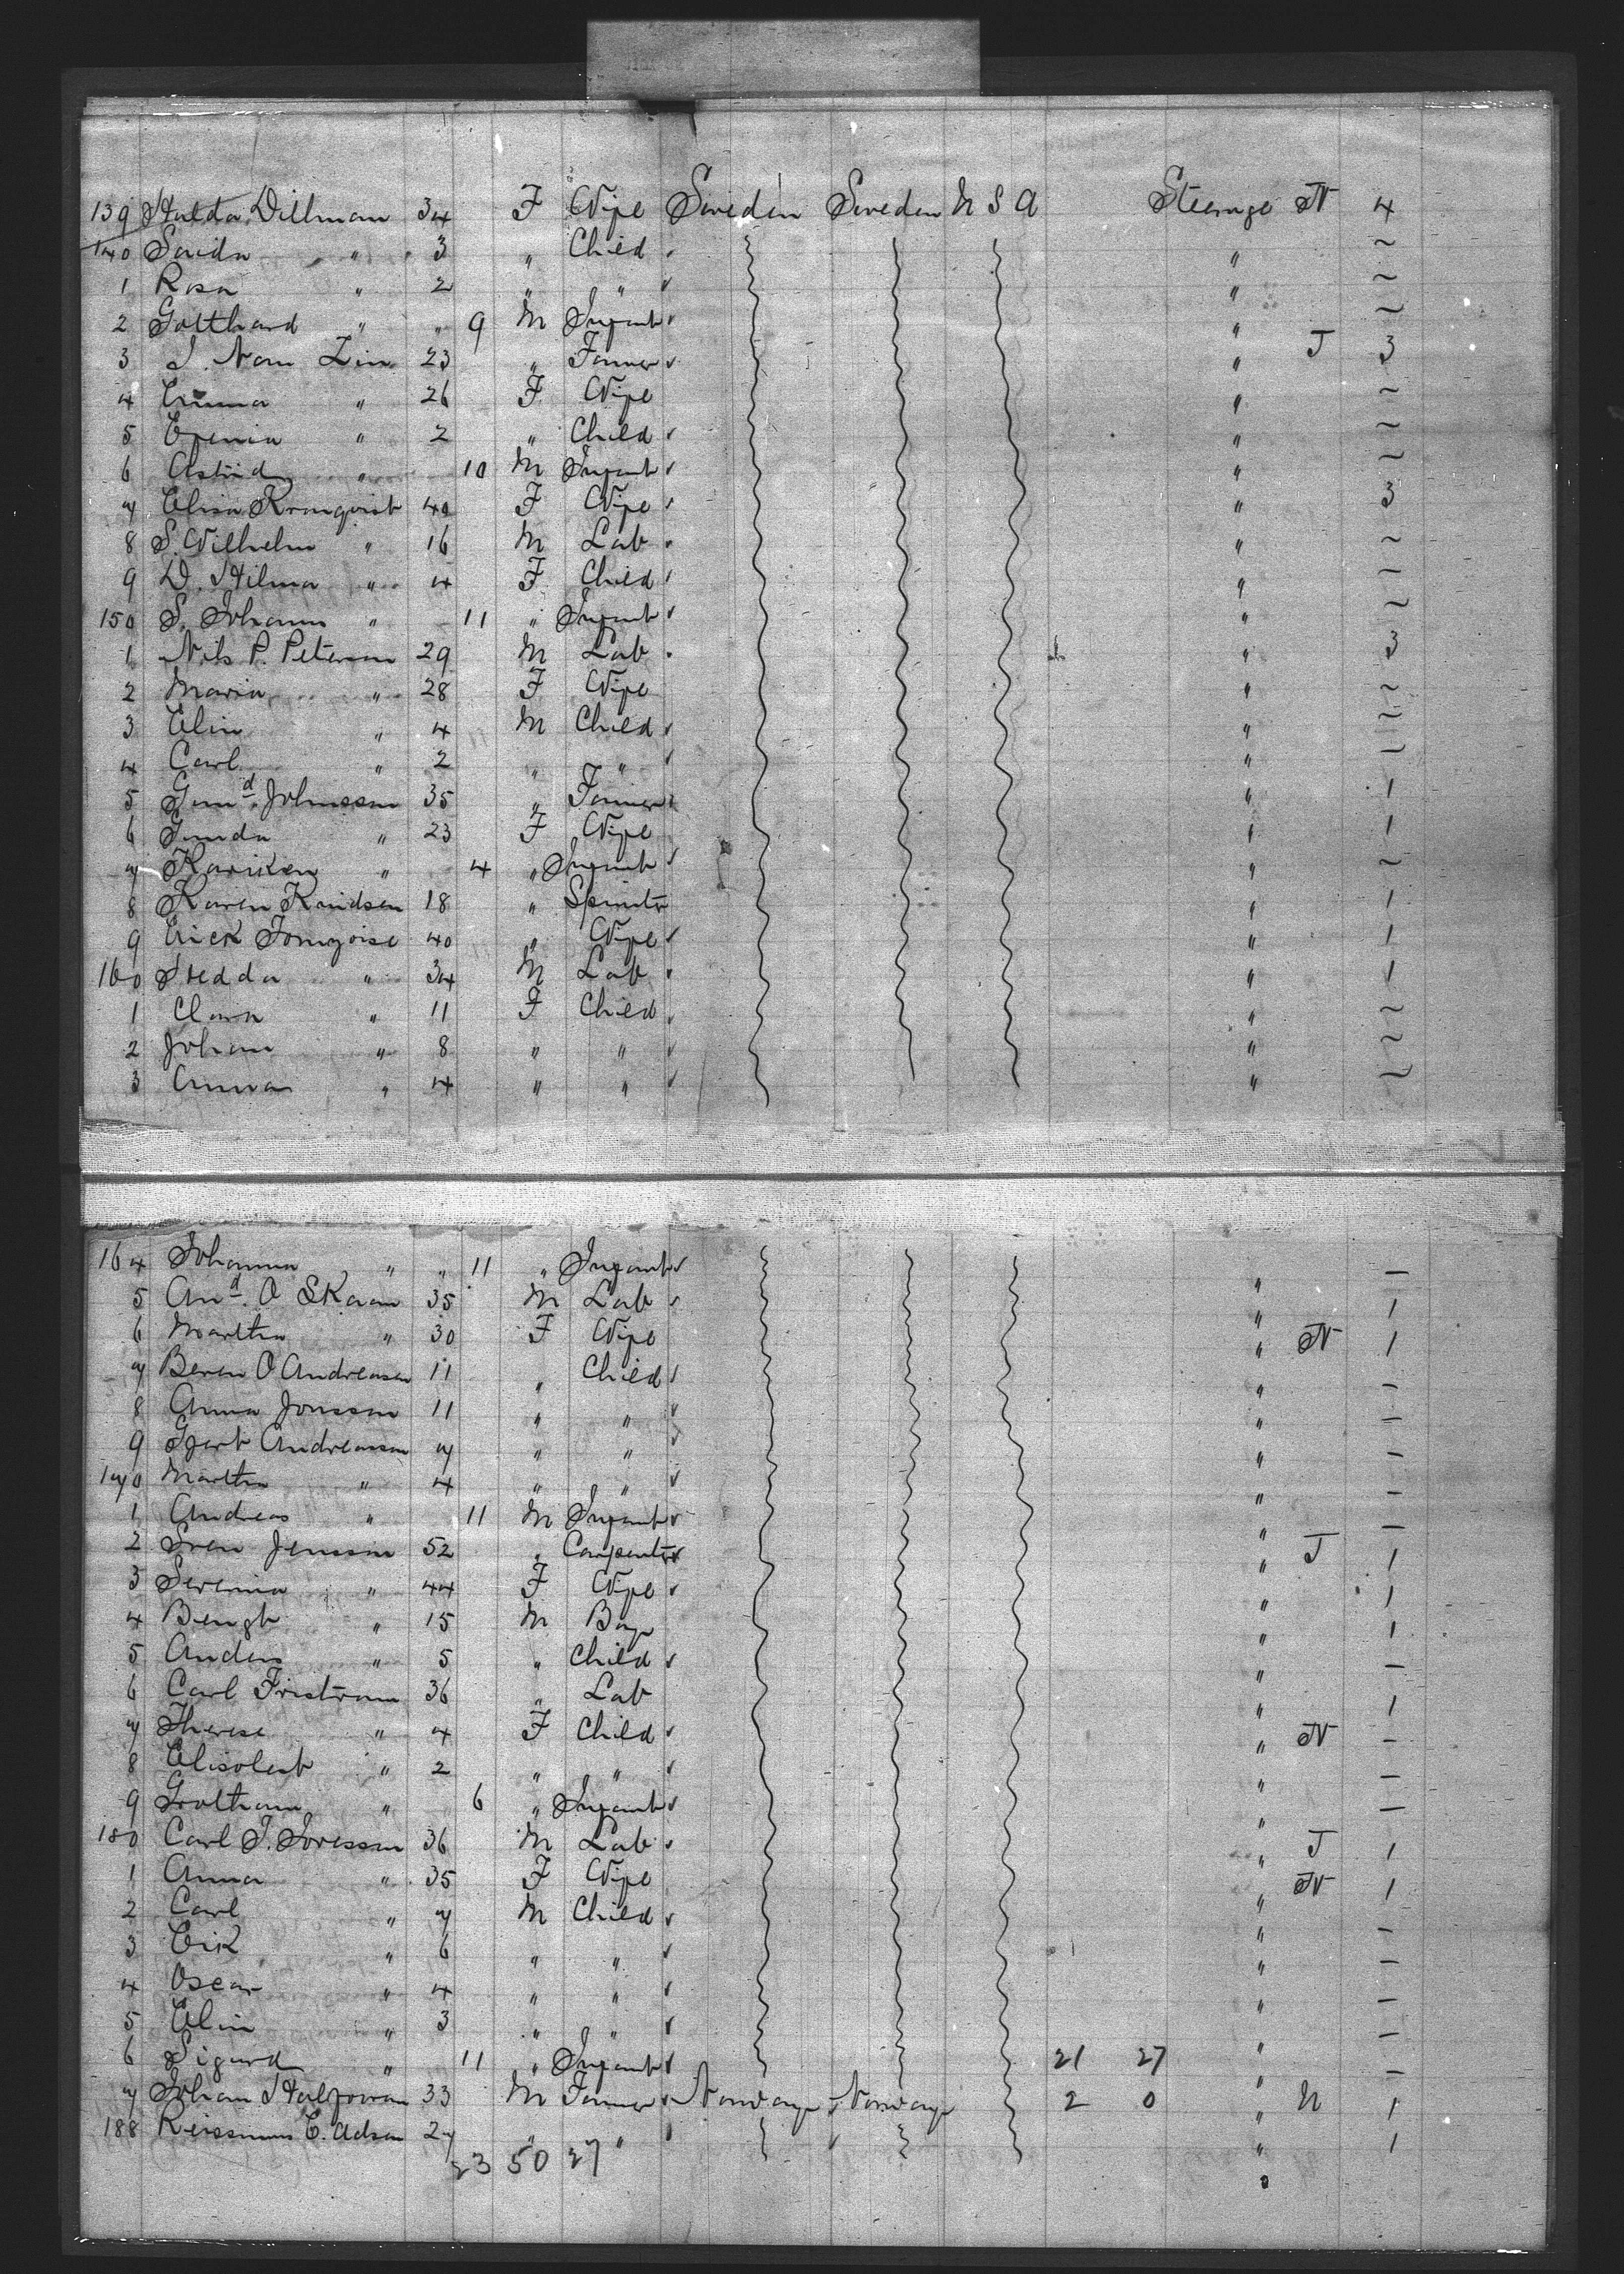 139 Hulda Dillman 34 F Wife Sweden Sweden U S A Steerage N 4
140 " 3 " Child " ~
1 Rosa " 2 " " " ~
2 Gotthard " " 9 M Infant " ~
3 23 " Farmer " J 3
4 Emma " 26 F Wife " ~
5 " 2 " Child " ~
6 Astrid " 10 M Infant " ~
7 Elisa Kronqvist 40 F Wife " 3
8 S. Wilhelm " 16 M Lab " ~
9 D. Hilma " 4 F Child " ~
150 S. Johanna " 11 " Infant " ~
1 Nils P. Peterson 29 M Lab " 3
2 Maria " 28 F Wife " ~
3 Elin " 4 M Child " ~
4 Carl " 2 " " " ~
5 Gund. Johnsson 35 " Farmer " 1
6 Gunda " 23 F Wife " 1
7 " 4 " Infant " ~
8 Karen Knidsen 18 " Spinster " 1
9 Erick 40 " Wife " 1
160 Hedda " 34 M Lab " 1
1 Clara " 11 F Child " ~
2 Johan " 8 " " " ~
3 Anna " 4 " " " ~
164 Johanna " " 11 " Infant " —
5 And. O Skaran 35 M Lab " 1
6 Martha " 30 F Wife " N 1
7 Beren O Andreasen 11 " Child " —
8 Anna Jonsson 11 " " " —
9 Gjert Andreassen 7 " " " —
170 Martha " 4 " " " —
1 Andreas " 11 M Infant " —
2 Sven Jensson 52 " Carpenter " J 1
3 Serenia " 44 F Wife " 1
4 Bengt " 15 M Boy " 1
5 Anders " 5 " Child " —
6 Carl Fristrom 36 " Lab " 1
7 Therese " 4 F Child " N —
8 Elisabet " 2 " " " —
9 " 6 " Infant " —
180 Carl J. 36 M Lab " J 1
1 Anna " 35 F Wife " N 1
2 Carl " 7 M Child " —
3 Erik " 6 " " " —
4 Oscar " 4 " " " —
5 Elin " 3 " " " —
6 Sigurd " 11 " Infant 21 27 " —
7 Johan 33 M Farmer Norway Norway 2 0 " N 1
188 27 " " " 1
23 50 27